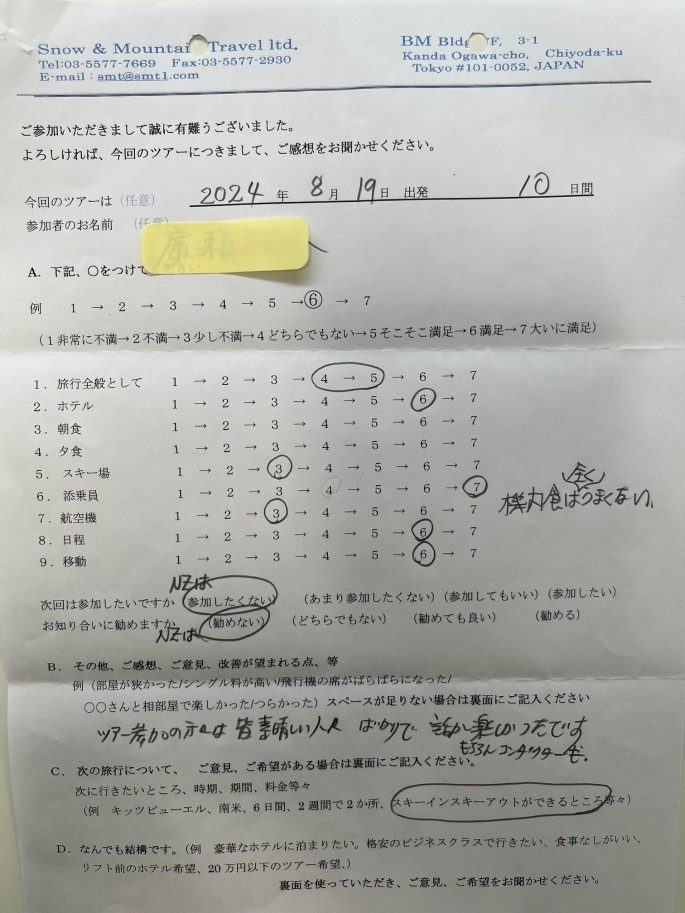 Snow & Mountain Travel ltd.
Tel:03-5577-7669 Fax:03-5577-2930
E-mail : smt@smt1.com
BM Bldg F, 3-1
Kanda Ogawa-cho, Chiyoda-ku
Tokyo #101-0052, JAPAN
ご参加いただきまして誠に有難うございました。
よろしければ、今回のツアーにつきまして、ご感想をお聞かせください。
今回のツアーは (任意) 2024 年 8 月 19 日 出発 10 日間
参加者のお名前 (任意)
A. 下記、○をつけて
例 1 → 2 → 3 → 4 → 5 → ⑥ → 7
(1 非常に不満→2 不満→3 少し不満→4 どちらでもない→5 そこそこ満足→6 満足→7 大いに満足)
1. 旅行全般として 1 → 2 → 3 → 4 → 5 → 6 → 7
2. ホテル 1 → 2 → 3 → 4 → 5 → 6 → 7
3. 朝食 1 → 2 → 3 → 4 → 5 → 6 → 7
4. 夕食 1 → 2 → 3 → 4 → 5 → 6 → 7
5. スキー場 1 → 2 → 3 → 4 → 5 → 6 → 7
6. 添乗員 1 → 2 → 3 → 4 → 5 → 6 → 7
全く
機内食はうまくない。
7. 航空機 1 → 2 → 3 → 4 → 5 → 6 → 7
8. 日程 1 → 2 → 3 → 4 → 5 → 6 → 7
9. 移動 1 → 2 → 3 → 4 → 5 → 6 → 7
NZは
次回は参加したいですか (参加したくない) (あまり参加したくない) (参加してもいい) (参加したい)
お知り合いに勧めますか (勧めない) (どちらでもない) (勧めても良い) (勧める)
NZは
B. その他、ご感想、ご意見、改善が望まれる点、等
例 (部屋が狭かった/シングル料が高い/飛行機の席がばらばらになった/
○○さんと相部屋で楽しかった/つらかった) スペースが足りない場合は裏面にご記入ください
ツアー参加の方々は皆素晴しい人々ばかりで 楽しかったです
もちろん コンダクターも。
C. 次の旅行について、 ご意見、ご希望がある場合は裏面にご記入ください。
次に行きたいところ、時期、期間、料金等々
(例 キッツビューエル、南米、6日間、2週間で2か所、スキーインスキーアウトができるところ等々)
D. なんでも結構です。(例 豪華なホテルに泊まりたい。格安のビジネスクラスで行きたい、食事なしがいい、
リフト前のホテル希望、20 万円以下のツアー希望、)
裏面を使っていただき、ご意見、ご希望をお聞かせください。